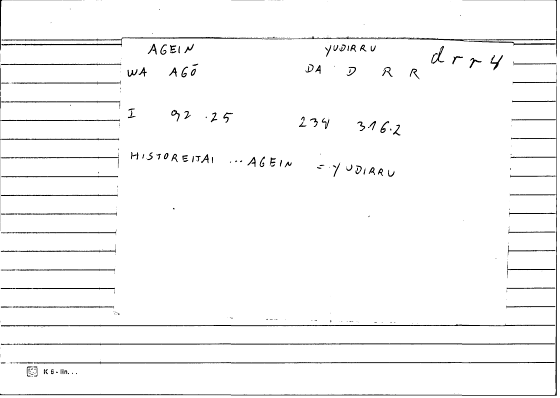 AGEIN YUDIRRU drr4
WA AGŌ DA D R R
I 92.25 234 316.2
HISTOREITAI ... AGEIN = YUDIRRU
K 6 - lin...